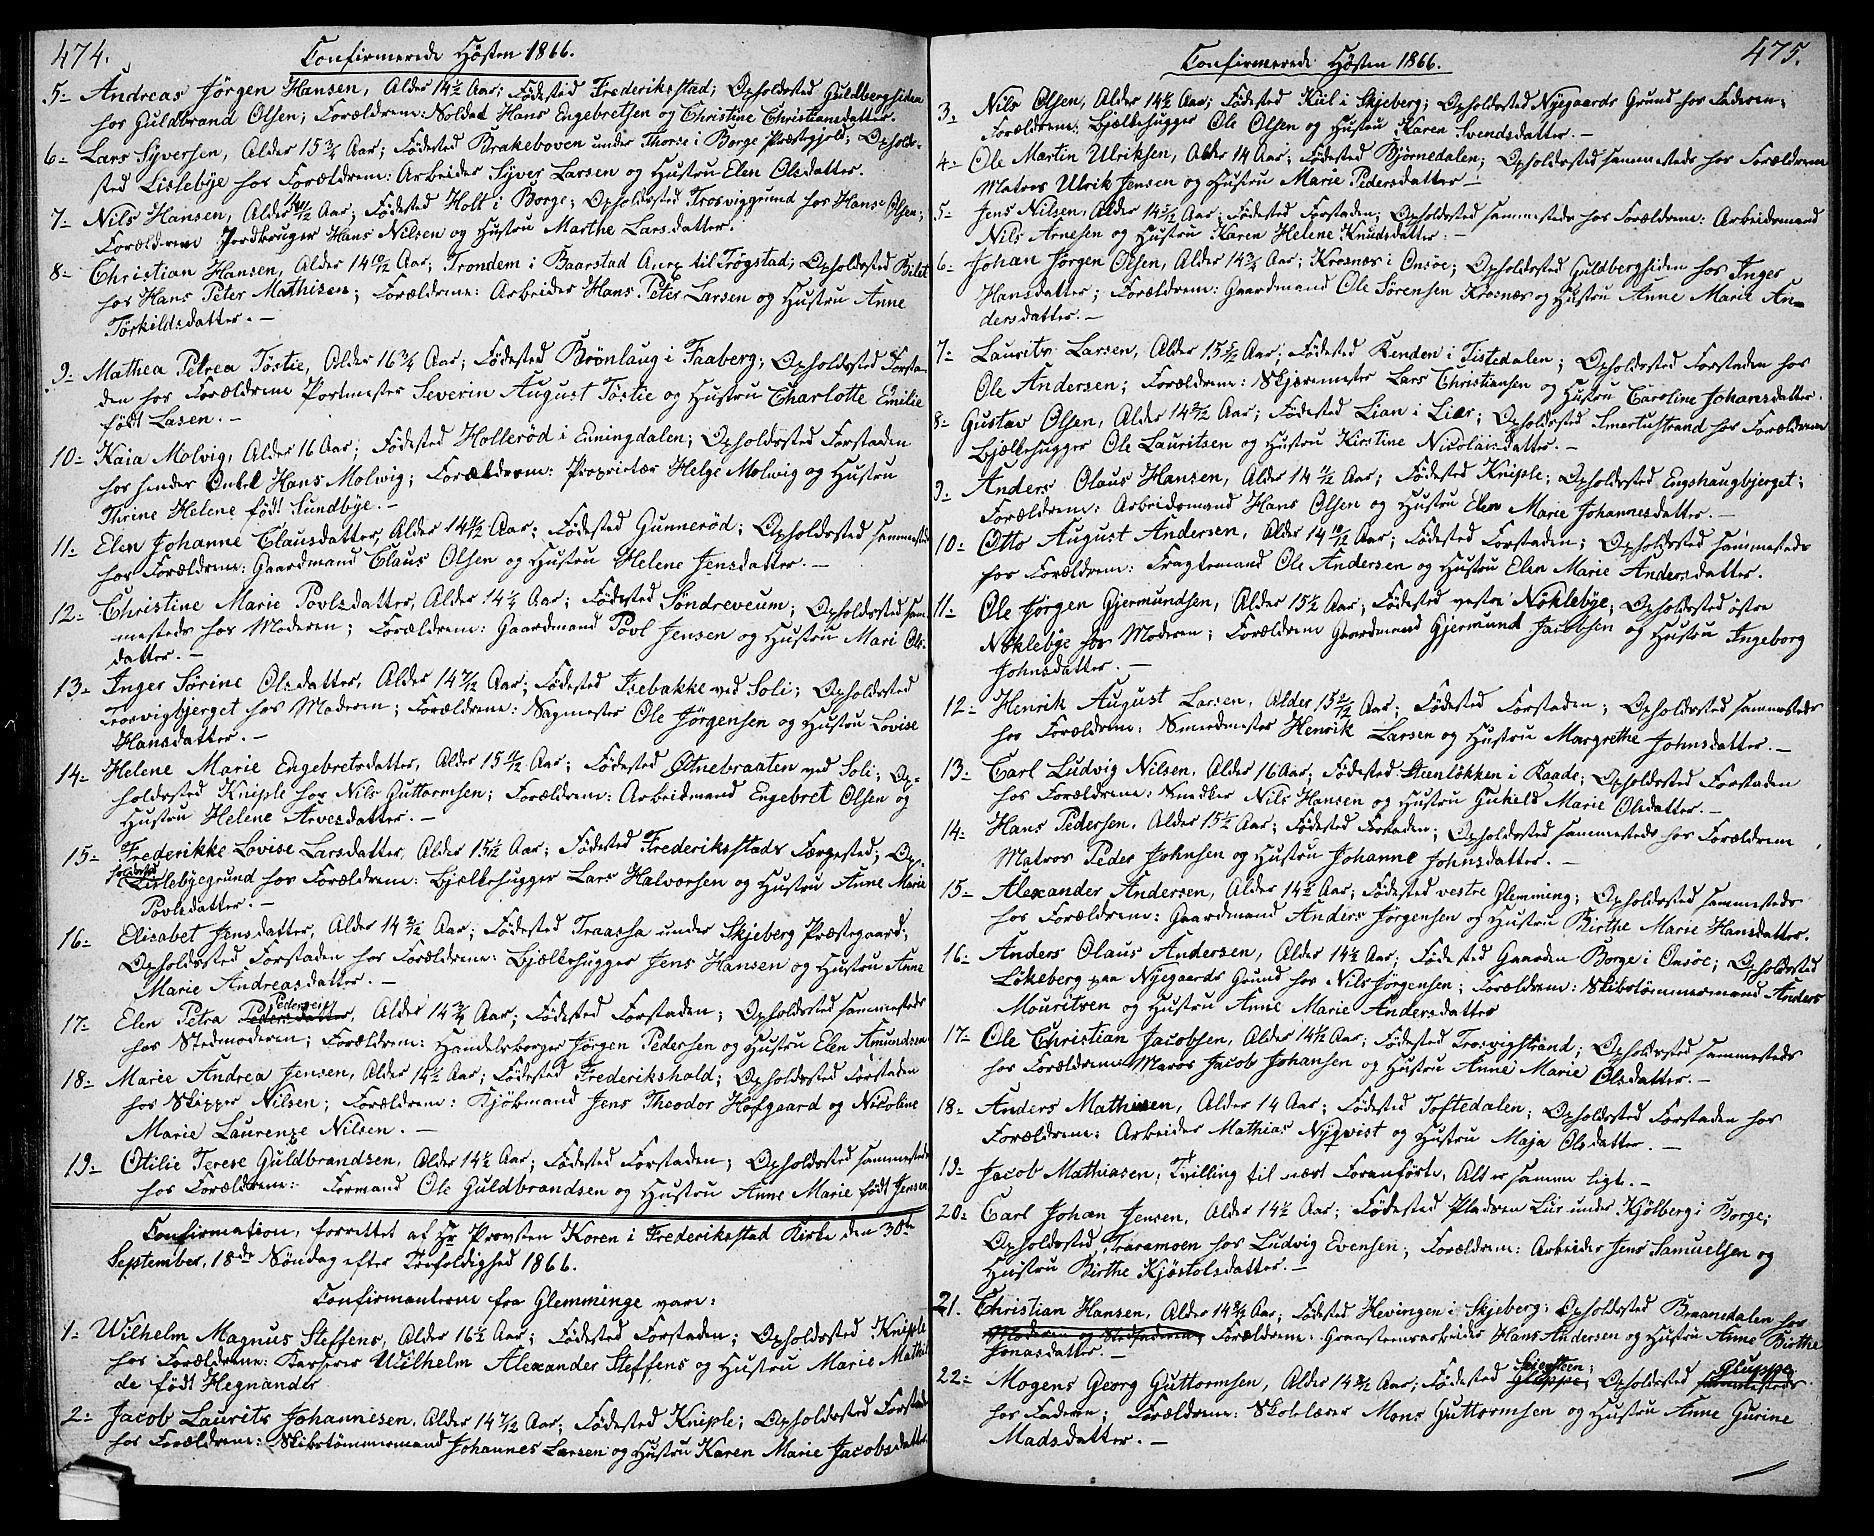 474.
Confirmerede Høsten 1866.
5- Andreas Jørgen Hansen, Alder 14½ Aar; Fødested Frederiksstad; Opholdssted Guldbergsiden
hos Guldbrand Olsen; Forældrene: Soldat Hans Engebretsen og Christine Christiansdatter.
6- Lars Syversen, Alder 15¾ Aar; Fødested Brakeboven under Thorsø i Borge Præstegjeld; Opholds-
sted Lislebye hos Forældrene: Arbeider Syver Larsen og Hustru Elen Olsdatter.
7- Nils Hansen, Alder 14 11/12 Aar; Fødested Holt i Borge; Opholdssted Trosviggrund hos Hans Olsen;
Forældrene Jordbruger Hans Nilsen og Hustru Marthe Larsdatter.
8- Christian Hansen, Alder 14 10/12 Aar; Trondem i Baarstad Anex til Trøgstad; Opholdssted Bilet
hos Hans Peter Mathisen; Forældrene: Arbeider Hans Peter Larsen og Hustru Anne
Tørkildsdatter. -
9- Mathea Petrea Tøstie, Alder 16¾ Aar; Fødested Brønlaug i Faaberg; Opholdssted Forsta-
den hos Forældrene Portmester Severin August Tøstie og Hustru Charlotte Emilie
født Lasen. -
10- Kaia Molvig, Alder 16 Aar; Fødested Hollerød i Enningdalen; Opholdssted Forstaden
hos hendes Onkel Hans Molwig; Forældrene: Proprietær Helge Molwig og Hustru
Thrine Helene født Sundbye. -
11- Elen Johanne Clausdatter, Alder 14 Aar; Fødested Gunnerød; Opholdssted sammesteds
hos Forældrene: Gaardmand Claus Olsen og Hustru Helene Jensdatter. -
12- Christine Marie Povlsdatter, Alder 14¼ Aar; Fødested Søndreveum; Opholdssted sam-
mesteds hos Moderen; Forældrene: Gaardmand Povl Jensen og Hustru Mari Ols-
datter. -
13- Inger Sørine Olsdatter, Alder 14 7/12 Aar; Fødested Isebakke ved Soli; Opholdssted
Trosvigbjerget hos Moderen; Forældrene: Sagmester Ole Jørgensen og Hustru Lovise
Hansdatter. -
14- Helene Marie Engebretsdatter, Alder 15 11/12 Aar; Fødested Øtnebraaten ved Soli; Op-
holdssted Kniple hos Nils Guttormsen; Forældrene: Arbeidmand Engebret Olsen og
Hustru Helene Arvesdatter. -
15- Frederikke Lovise Larsdatter, Alder 15½ Aar; Fødested Frederiksstads Færgested; Op-
holdssted Lislebyegrund hos Forældrene: Bjelkehugger Lars Halvorsen og Hustru Anne Marie
Povlsdatter. -
16- Elisabet Jensdatter, Alder 14 Aar; Fødested Traassa under Skjeberg Præstegaard;
Opholdssted Forstaden hos Forældrene: Bjelkehugger Jens Hansen og Hustru Anne
Marie Andreasdatter. -
17- Elen Petra Pedersen, Alder 14¾ Aar; Fødested Forstaden; Opholdssted sammesteds
hos Stedmoderen; Forældrene: Handelsborger Jørgen Pedersen og Hustru Elen Amundsen
18- Marie Andrea Jensen, Alder 14½ Aar; Fødested Frederikshald; Opholdssted Forstaden
hos Skipper Nilsen; Forældrene: Kjøbmand Jens Theodor Hofgaard og Nicoline
Marie Laurenze Nilsen. -
19- Otilie Terese Guldbrandsen, Alder 14½ Aar; Fødested Forstaden; Opholdssted sammesteds
hos Forældrene: Formand Ole Guldbrandsen og Hustru Anne Marie født Jensen
Confirmation, forrettet af Hr Provsten Koren i Frederiksstad Kirke den 30te
September, 18de Søndag efter Trefoldighed 1866.
Confirmanterne fra Glemminge vare:
1- Wilhelm Magnus Steffens, Alder 16½ Aar; Fødested Forstaden; Opholdssted Kniple
hos Forældrene: Kasserer Wilhelm Alexander Steffens og Hustru Marie Mathil-
de født Hegnander
2- Jacob Laurits Johannesen, Alder 14 7/12 Aar; Fødested Kniple; Opholdssted Forstad
hos Forældrene: Skibstømmermand Johannes Larsen og Hustru Karen Marie Jacobsdatter
475.
Confirmerede Høsten 1866.
3. Nils Olsen, Alder 14½ Aar; Fødested Kiil i Skjeberg; Opholdssted Nyegaards Grund hos Faderen;
Forældrene: Bjelkehugger Ole Olsen og Hustru Karen Svendsdatter. -
4- Ole Martin Ulriksen, Alder 14 Aar; Fødested Bjørnedalen; Opholdssted sammesteds hos Forældrene
Matros Ulrik Jensen og Hustru Marie Pedersdatter -
5- Jens Nilsen, Alder 14 5/12 Aar; Fødested Forstaden; Opholdssted sammesteds hos Forældrene: Arbeidsmand
Nils Arnesen og Hustru Karen Helene Knudsdatter. -
6- Johan Jørgen Olsen, Alder 14¾ Aar; Krosnæs i Onsøe; Opholdssted Guldbergsiden hos Inger
Hansdatter; Forældrene: Gaardmand Ole Sørensen Krosnæs og Hustru Anne Marie An-
dersdatter. -
7- Laurits Larsen, Alder 15 5/12 Aar; Fødested Renden i Tistedalen; Opholdssted Forstaden hos
Ole Andersen; Forældrene: Skjæremester Lars Christiansen og Hustru Caroline Johansdatter.
8- Gustav Olsen, Alder 14 Aar; Fødested Lian i Lier; Opholdssted Smertustrand hos Forældrene
Bjelkehugger Ole Lauritsen og Hustru Kirstine Nicolaisdatter. -
9- Anders Olaus Hansen, Alder 14 11/12 Aar; Fødested Kniple; Opholdssted Engshaugbjerget;
Forældrene: Arbeidsmand Hans Olsen og Hustru Elen Marie Johannesdatter. -
10- Otto August Andersen, Alder 14 10/12 Aar; Fødested Forstaden; Opholdssted sammesteds
hos Forældrene: Fragtemand Ole Andersen og Hustru Elen Marie Andersdatter.
11- Ole Jørgen Gjermundsen, Alder 15½ Aar; Fødested vestre Nøklebye; Opholdssted østre
Nøklebye hos Moderen; Forældrene Gaardmand Gjermund Jacobsen og Hustru Ingeborg
Johnsdatter. -
12- Henrik August Larsen, Alder 15 Aar; Fødested Forstaden; Opholdssted sammesteds
hos Forældrene: Smedmester Henrik Larsen og Hustru Margrethe Johnsdatter. -
13- Carl Ludvig Nilsen, Alder 16 Aar; Fødested Steenløkken i Raade; Opholdssted Forstaden
hos Forældrene: Snedker Nils Hansen og Hustru Gunhild Marie Olsdatter. -
14- Hans Pedersen, Alder 15½ Aar; Fødested Forstaden; Opholdssted sammesteds hos Forældrene
Matros Peder Johnsen og Hustru Johanne Johnsdatter. -
15- Alexander Andersen, Alder 14½ Aar; Fødested vestre Glemming; Opholdssted sammesteds
hos Forældrene: Gaardmand Anders Jørgensen og Hustru Birthe Marie Hansdatter.
16- Anders Olaus Andersen, Alder 14½ Aar; Fødested Gaarden Borge i Onsøe; Opholdssted
Løkeberg paa Nyegaards Grund hos Nils Jørgensen; Forældrene: Skibstømmermand Anders
Mouritsen og Hustru Anne Marie Andersdatter
17- Ole Christian Jacobsen, Alder 14½ Aar; Fødested Trosvigstrand; Opholdssted sammesteds
hos Forældrene Maros Jacob Johansen og Hustru Anne Marie Olsdatter. -
18- Anders Mathisen, Alder 14 Aar; Fødested Toftedalen; Opholdssted Forstaden hos
Forældrene: Arbeider Mathias Nyqvist og Hustru Maja Olsdatter. -
19- Jacob Mathiasen, Tvilling til næst Foranførte, Alt er samme ligt. -
20- Carl Johan Jensen, Alder 14½ Aar; Fødested Pladsen Lür under Kjølberg i Borge;
Opholdssted Traramoen hos Ludvig Evensen; Forældrene: Arbeider Jens Samuelsen og
Hustru Birthe Kjøstolsdatter. -
21. Christian Hansen, Alder 14¾ Aar; Fødested Hevingen i Skjeberg; Opholdssted Braanedalen hos
Moderen og Stedfaderen; Forældrene: Graasteensarbeider Hans Andersen og Hustru Anne Birthe
Jonasdatter. -
22- Mogens Georg Guttormsen, Alder 14 Aar; Fødested Gluppe; Opholdssted sammesteds Gluppe
hos Faderen; Forældrene: Skolelærer Mons Guttormsen og Hustru Anne Gurine
Madsdatter. -